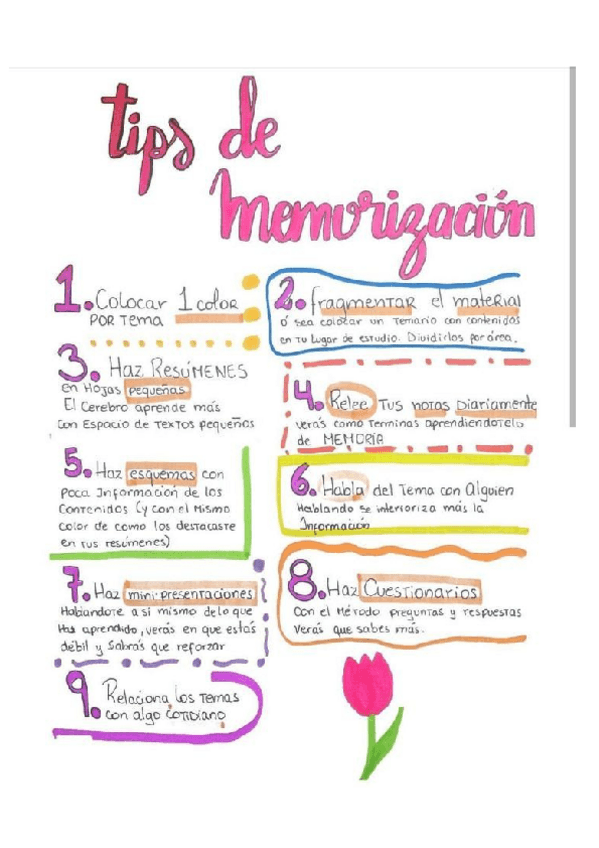 tips de
memorización
1. Colocar 1 color
POR Tema
2. fragmentar el material
ó sea colocar un Temario con contenidos
en Tu lugar de estudio. Dividirlos por área.
3. Haz Resúmenes
en Hojas pequeñas
El Cerebro aprende más
con Espacio de Textos pequeños
4. Relee Tus notas Diariamente
verás como Terminas aprendiendotelo
de MEMORIA
5. Haz esquemas con
Poca Información de los
Contenidos (y con el Mismo
color de como los destacaste
en tus resúmenes)
6. Habla del Tema con Alguien
Hablando se interioriza más la
Información
7. Haz mini-presentaciones
Hablandote a si mismo de lo que
Has aprendido, verás en que estás
débil y Sabrás que reforzar
8. Haz Cuestionarios
Con el Método preguntas y respuestas
Verás que sabes más.
9. Relaciona los Temas
con algo Cotidiano